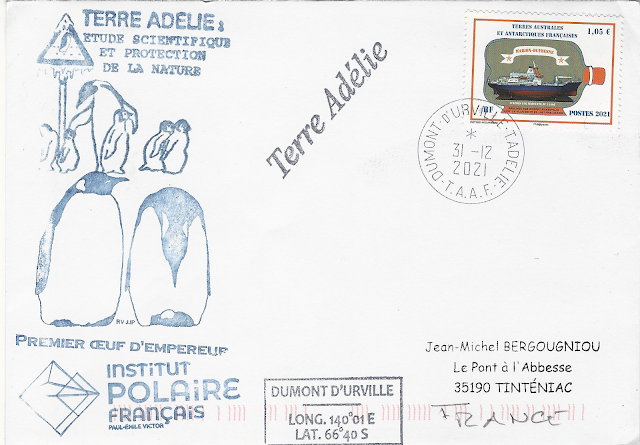 TERRE ADÉLIE:
ETUDE SCIENTIFIQUE
ET PROTECTION
DE LA NATURE
Terre Adélie
TERRES AUSTRALES
ET ANTARCTIQUES FRANÇAISES
1,05 €
MARION-DUFRESNE
RF
POSTES 2021
DUMONT-D'URVILLE-T.ADELIE
*
31-12
2021
-T.A.A.F.-
RV JJP
PREMIER ŒUF D'EMPEREUR
INSTITUT
POLAIRE
FRANÇAIS
PAUL-ÉMILE VICTOR
DUMONT D'URVILLE
LONG. 140°01 E
LAT. 66°40 S
Jean-Michel BERGOUGNIOU
Le Pont à l'Abbesse
35190 TINTÉNIAC
FRANCE